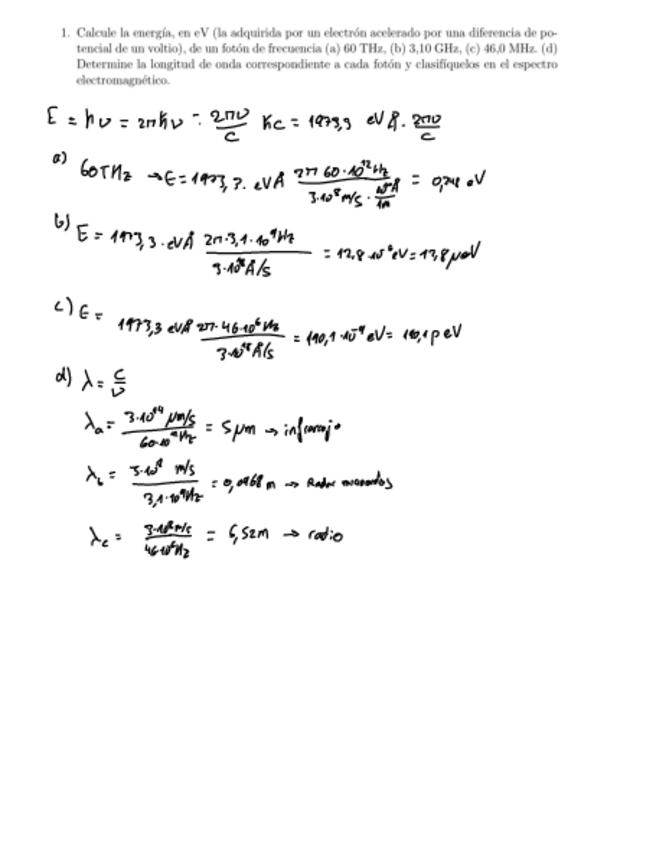 1. Calcule la energía, en eV (la adquirida por un electrón acelerado por una diferencia de po-
tencial de un voltio), de un fotón de frecuencia (a) 60 THz, (b) 3,10 GHz, (c) 46,0 MHz. (d)
Determine la longitud de onda correspondiente a cada fotón y clasifíquelos en el espectro
electromagnético.
E = hν = 2πħν = 2πν/c ħc = 1973,3 eV Å · 2πν/c
a) 60THz → E = 1973,3 · eVÅ 2π 60·10¹² Hz / 3·10⁸ m/s · 10¹⁰Å/1m = 0,248 eV
b) E = 1973,3 · eVÅ 2π·3,1·10⁹ Hz / 3·10¹⁸ Å/s = 12,8·10⁻⁶ eV = 12,8 μeV
c) E = 1973,3 eVÅ 2π·46·10⁶ Hz / 3·10¹⁸ Å/s = 190,1·10⁻⁹ eV = 190,1 peV
d) λ = c/ν
λa = 3·10¹⁴ μm/s / 60·10¹² Hz = 5 μm → infrarrojo
λb = 3·10⁸ m/s / 3,1·10⁹ Hz = 0,0968 m → Radar microondas
λc = 3·10⁸ m/s / 46·10⁶ Hz = 6,52 m → radio